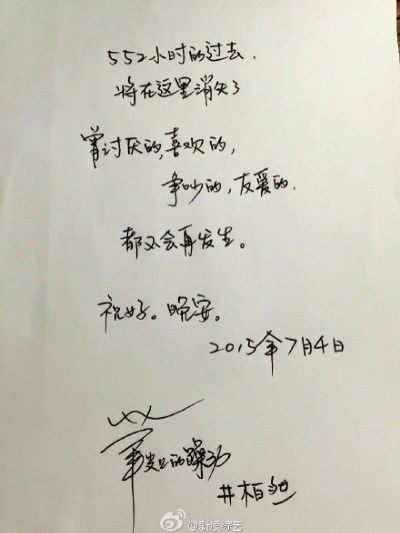 552小时的过去.
将在这里消失了
曾讨厌的,喜欢的,
争吵的,友爱的.
都不会再发生。
祝好。晚安。
2015年7月4日
的躁动
#柏
@新浪综艺